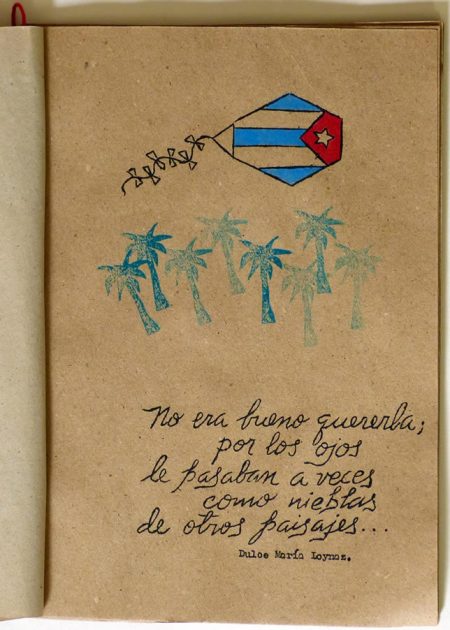 No era bueno quererla;
por los ojos
le pasaban a veces
como nieblas
de otros paisajes...
Dulce María Loynaz.